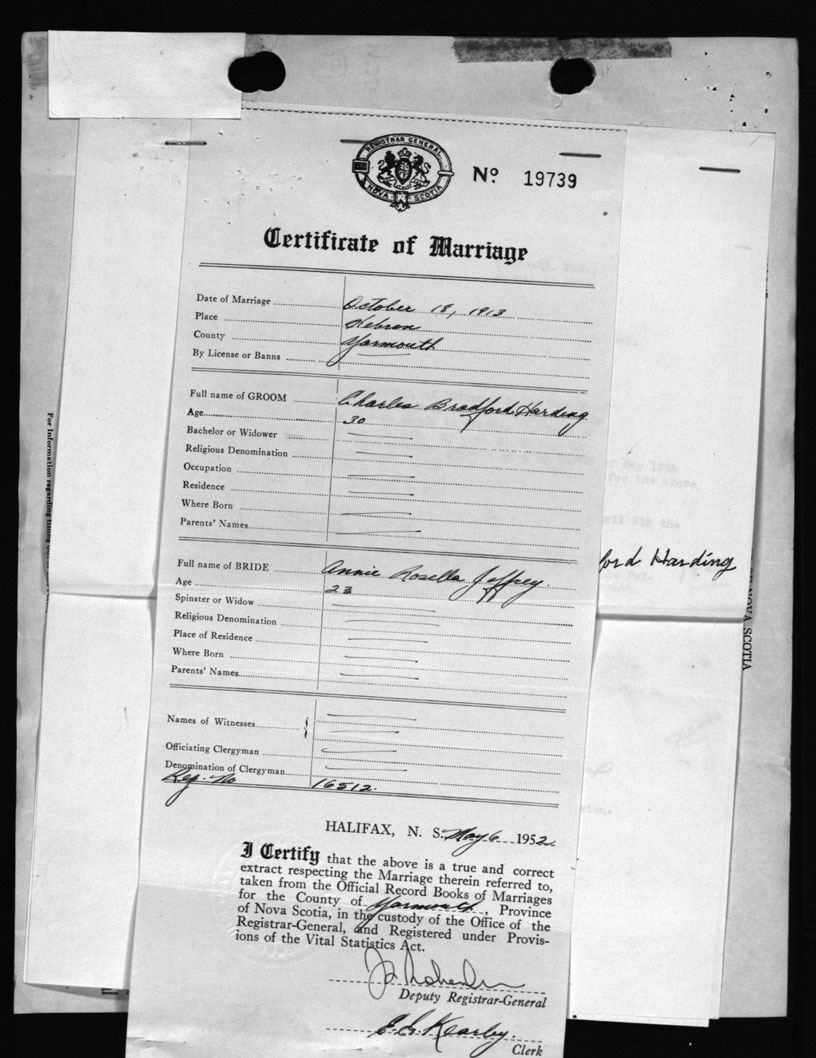 REGISTRAR GENERAL
NOVA SCOTIA
No 19739
Certificate of Marriage
Date of Marriage October 18, 1913
Place Hebron
County Yarmouth
By License or Banns
Full name of GROOM Charles Bradford Harding
Age 30
Bachelor or Widower
Religious Denomination
Occupation
Residence
Where Born
Parents' Names
Full name of BRIDE Annie Rosella Jeffrey.
Age 23
Spinster or Widow
Religious Denomination
Place of Residence
Where Born
Parents' Names
Names of Witnesses
Officiating Clergyman
Denomination of Clergyman
Reg. No 16512.
HALIFAX, N. S. May 6 1952
I Certify that the above is a true and correct
extract respecting the Marriage therein referred to,
taken from the Official Record Books of Marriages
for the County of Yarmouth, Province
of Nova Scotia, in the custody of the Office of the
Registrar-General, and Registered under Provis-
ions of the Vital Statistics Act.
Deputy Registrar-General
E. G. Kearby.
Clerk
For Information regarding filing
ford Harding
NOVA SCOTIA
May 19th
for the above
April 5th the